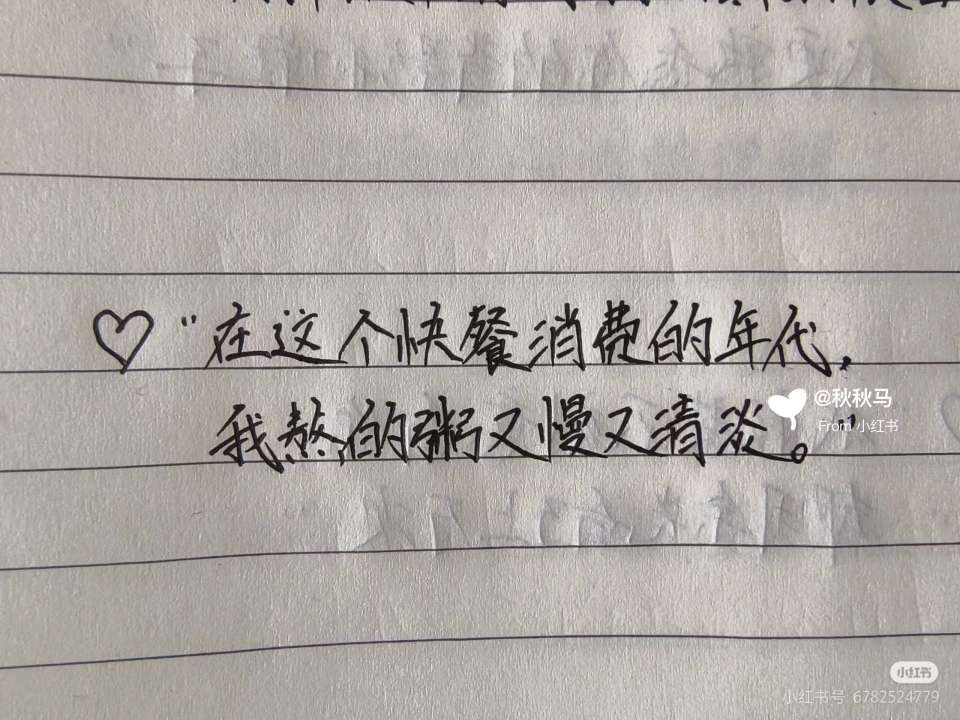 ♡ “在这个快餐消费的年代，
我熬的粥又慢又清淡。”
@秋秋马
From 小红书
小红书
小红书号: 6782524779